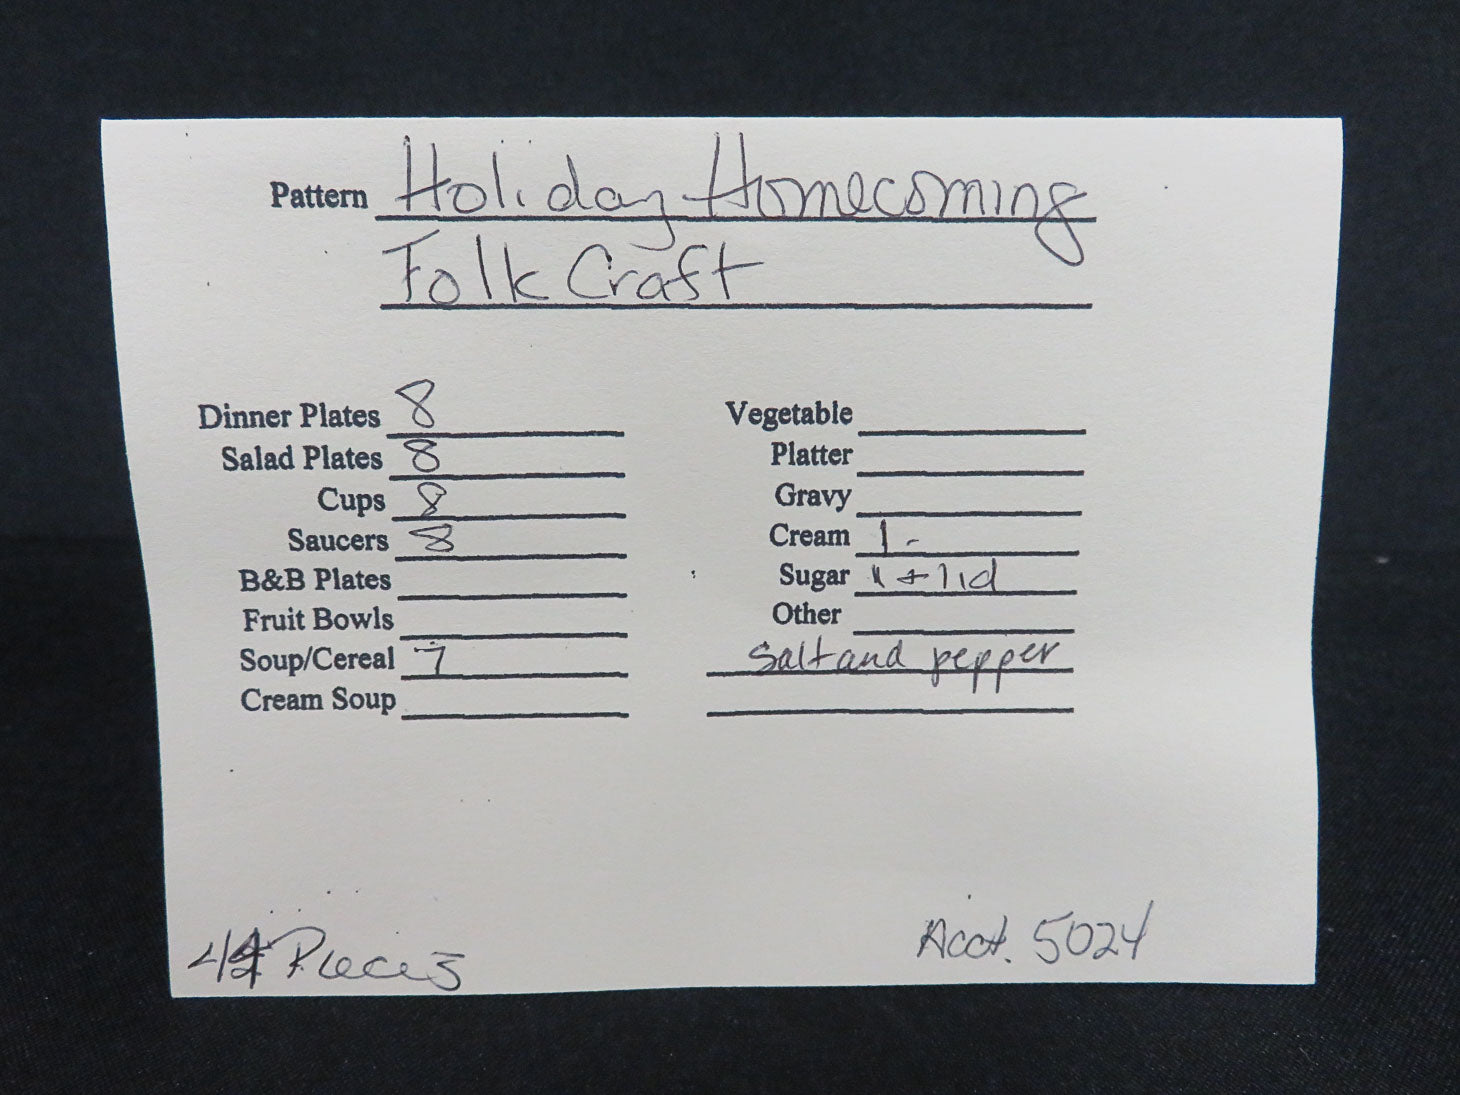 Pattern Holiday Homecoming
Folk Craft
Dinner Plates 8
Salad Plates 8
Cups 8
Saucers 8
B&B Plates
Fruit Bowls
Soup/Cereal 7
Cream Soup
Vegetable
Platter
Gravy
Cream 1 -
Sugar 1 + lid
Other
Salt and pepper
Pieces
Acct. 5024